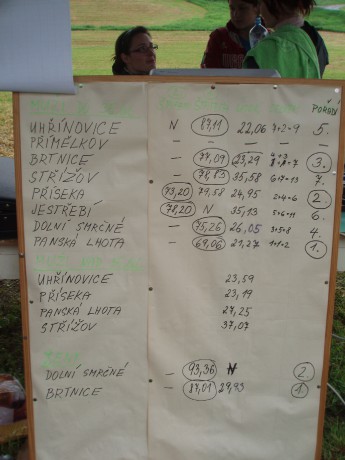 POŘADÍ
UHŘÍNOVICE N 87,11 22,06 7+2=9 5.
PŘÍMĚLKOV — — — —
BRTNICE — 77,09 23,29 3.
STŘÍŽOV — 78,83 35,58 6+7=13 7.
PŘÍSEKA 73,20 79,58 24,95 2+4=6 2.
JESTŘEBÍ 78,20 N 35,13 5+6=11 6.
DOLNÍ SMRČNÉ — 75,26 26,05 3+5=8 4.
PANSKÁ LHOTA — 69,06 21,27 1+1=2 1.
UHŘÍNOVICE 23,59
PŘÍSEKA 23,19
PANSKÁ LHOTA 27,25
STŘÍŽOV 37,07
DOLNÍ SMRČNÉ — 93,36 N 2.
BRTNICE — 87,01 29,93 1.